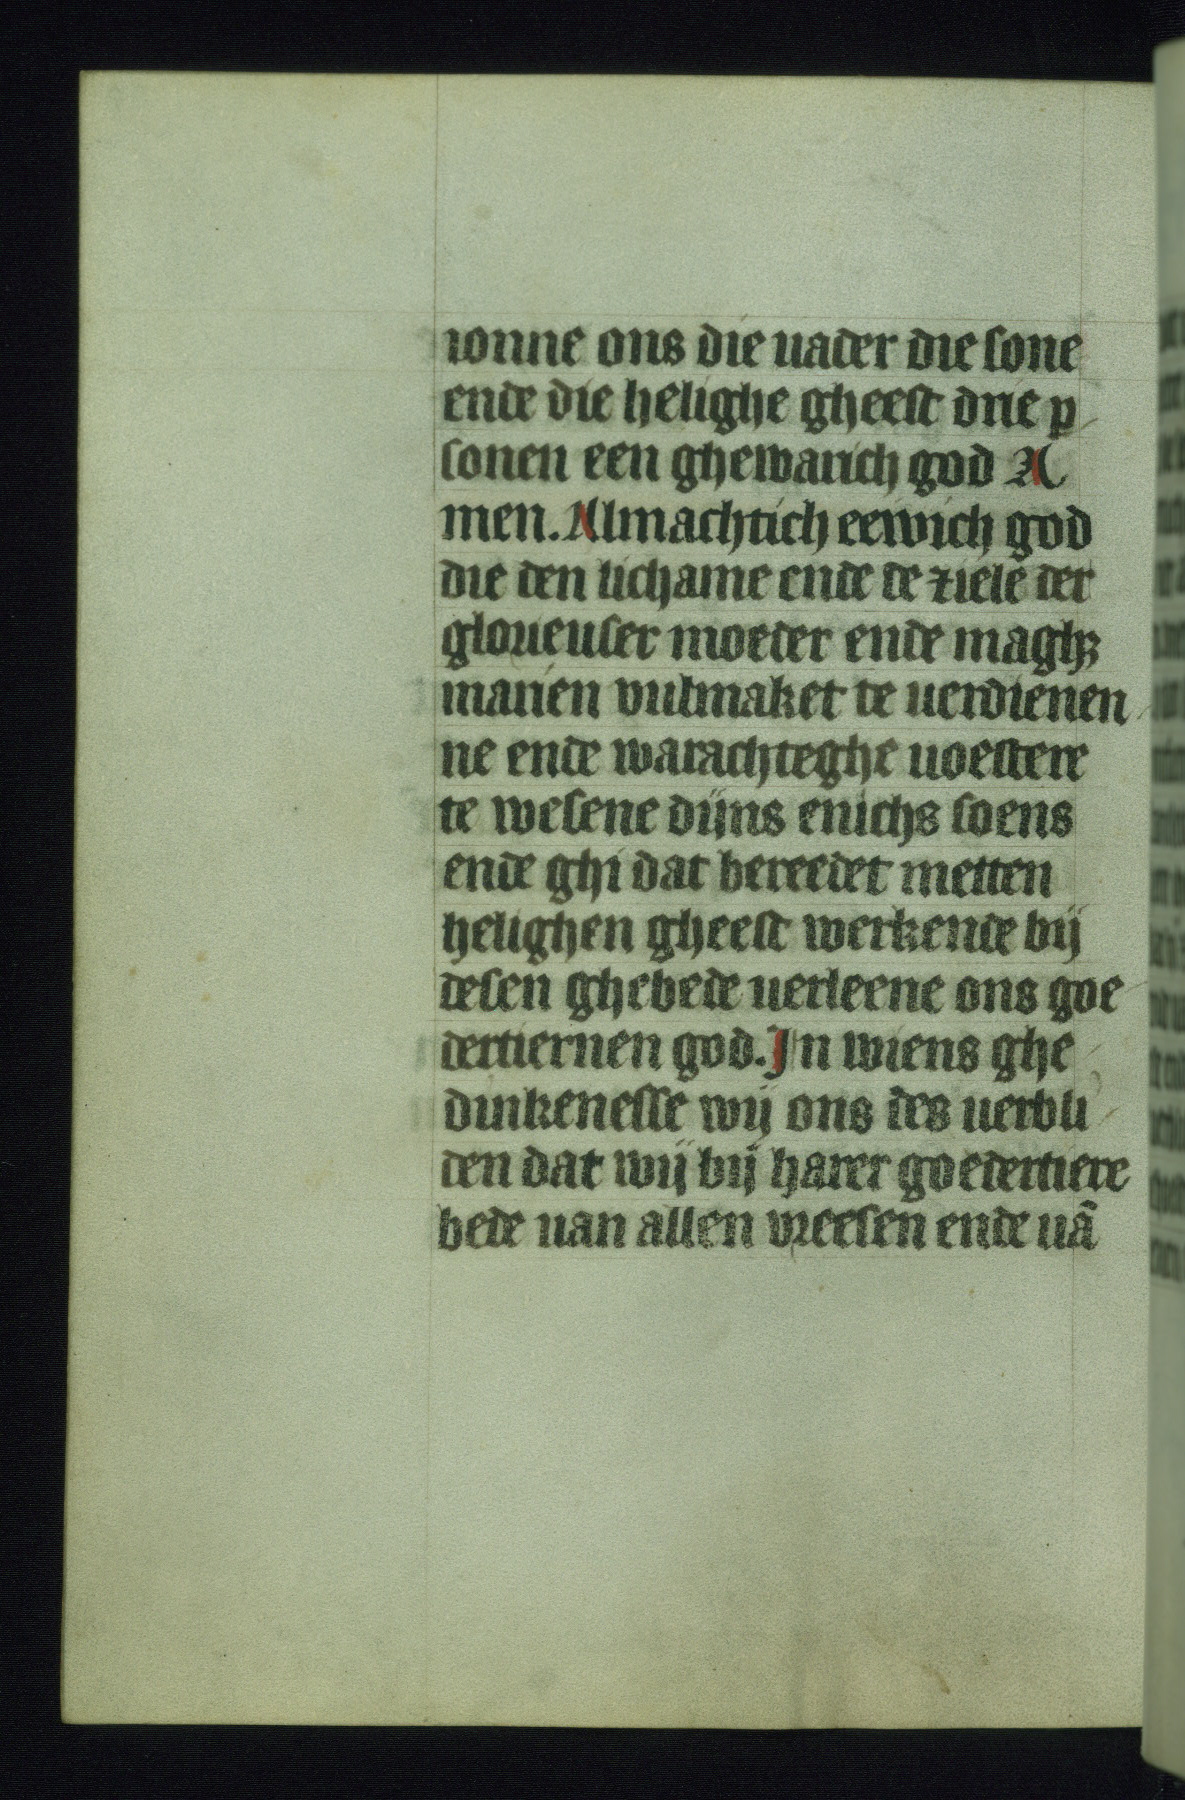 ionne ons die uader die sone
ende die helighe gheest drie p
sonen een ghewarich god A
men. Almachtich eewich god
die den lichame ende de ziele der
glorieuser moeder ende maghꝫ
marien vulmaket te uerdienen
ne ende warachteghe uoestere
te wesene dijns enichs soens
ende ghi dat bereedet metten
helighen gheest werkende bij
desen ghebede uerleene ons goe
dertiernen god. In wiens ghe
dinkenesse wij ons des uerbli
den dat wij bij harer goedertiere
bede uan allen vreesen ende uā